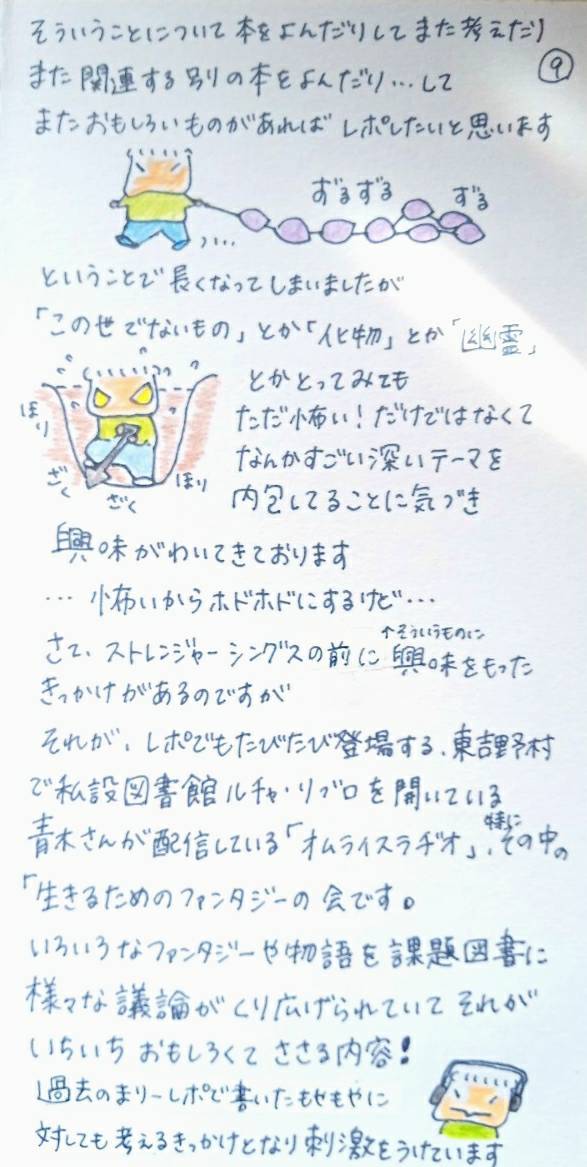 そういうことについて本をよんだりしてまた考えたり
⑨
また関連する別りの本をよんだり…して
またおもしろいものがあればレポしたいと思います
ずるずる
ずる
ということで長くなってしまいましたが
「この世でないもの」とか「化物」とか「幽霊」
とかとってみても
ほり
ただ怖い！だけではなくて
なんかすごい深いテーマを
ざく
ざく
ほり
内包してることに気づき
興味がわいてきております
…怖いからホドホドにするけど…
↑そういうものに
さて、ストレンジャーシングスの前に興味をもった
きっかけがあるのですが
それが、レポでもたびたび登場する、東吉野村
で私設図書館ルチャ・リブロを開いている
特に
青木さんが配信している「オムライスラヂオ」、その中の
「生きるためのファンタジーの会です。
いろいろなファンタジーや物語を課題図書に
様々な議論がくり広げられていてそれが
いちいちおもしろくてささる内容！
過去のまりーレポで書いたもやもやに
対しても考えるきっかけとなり刺激をうけています